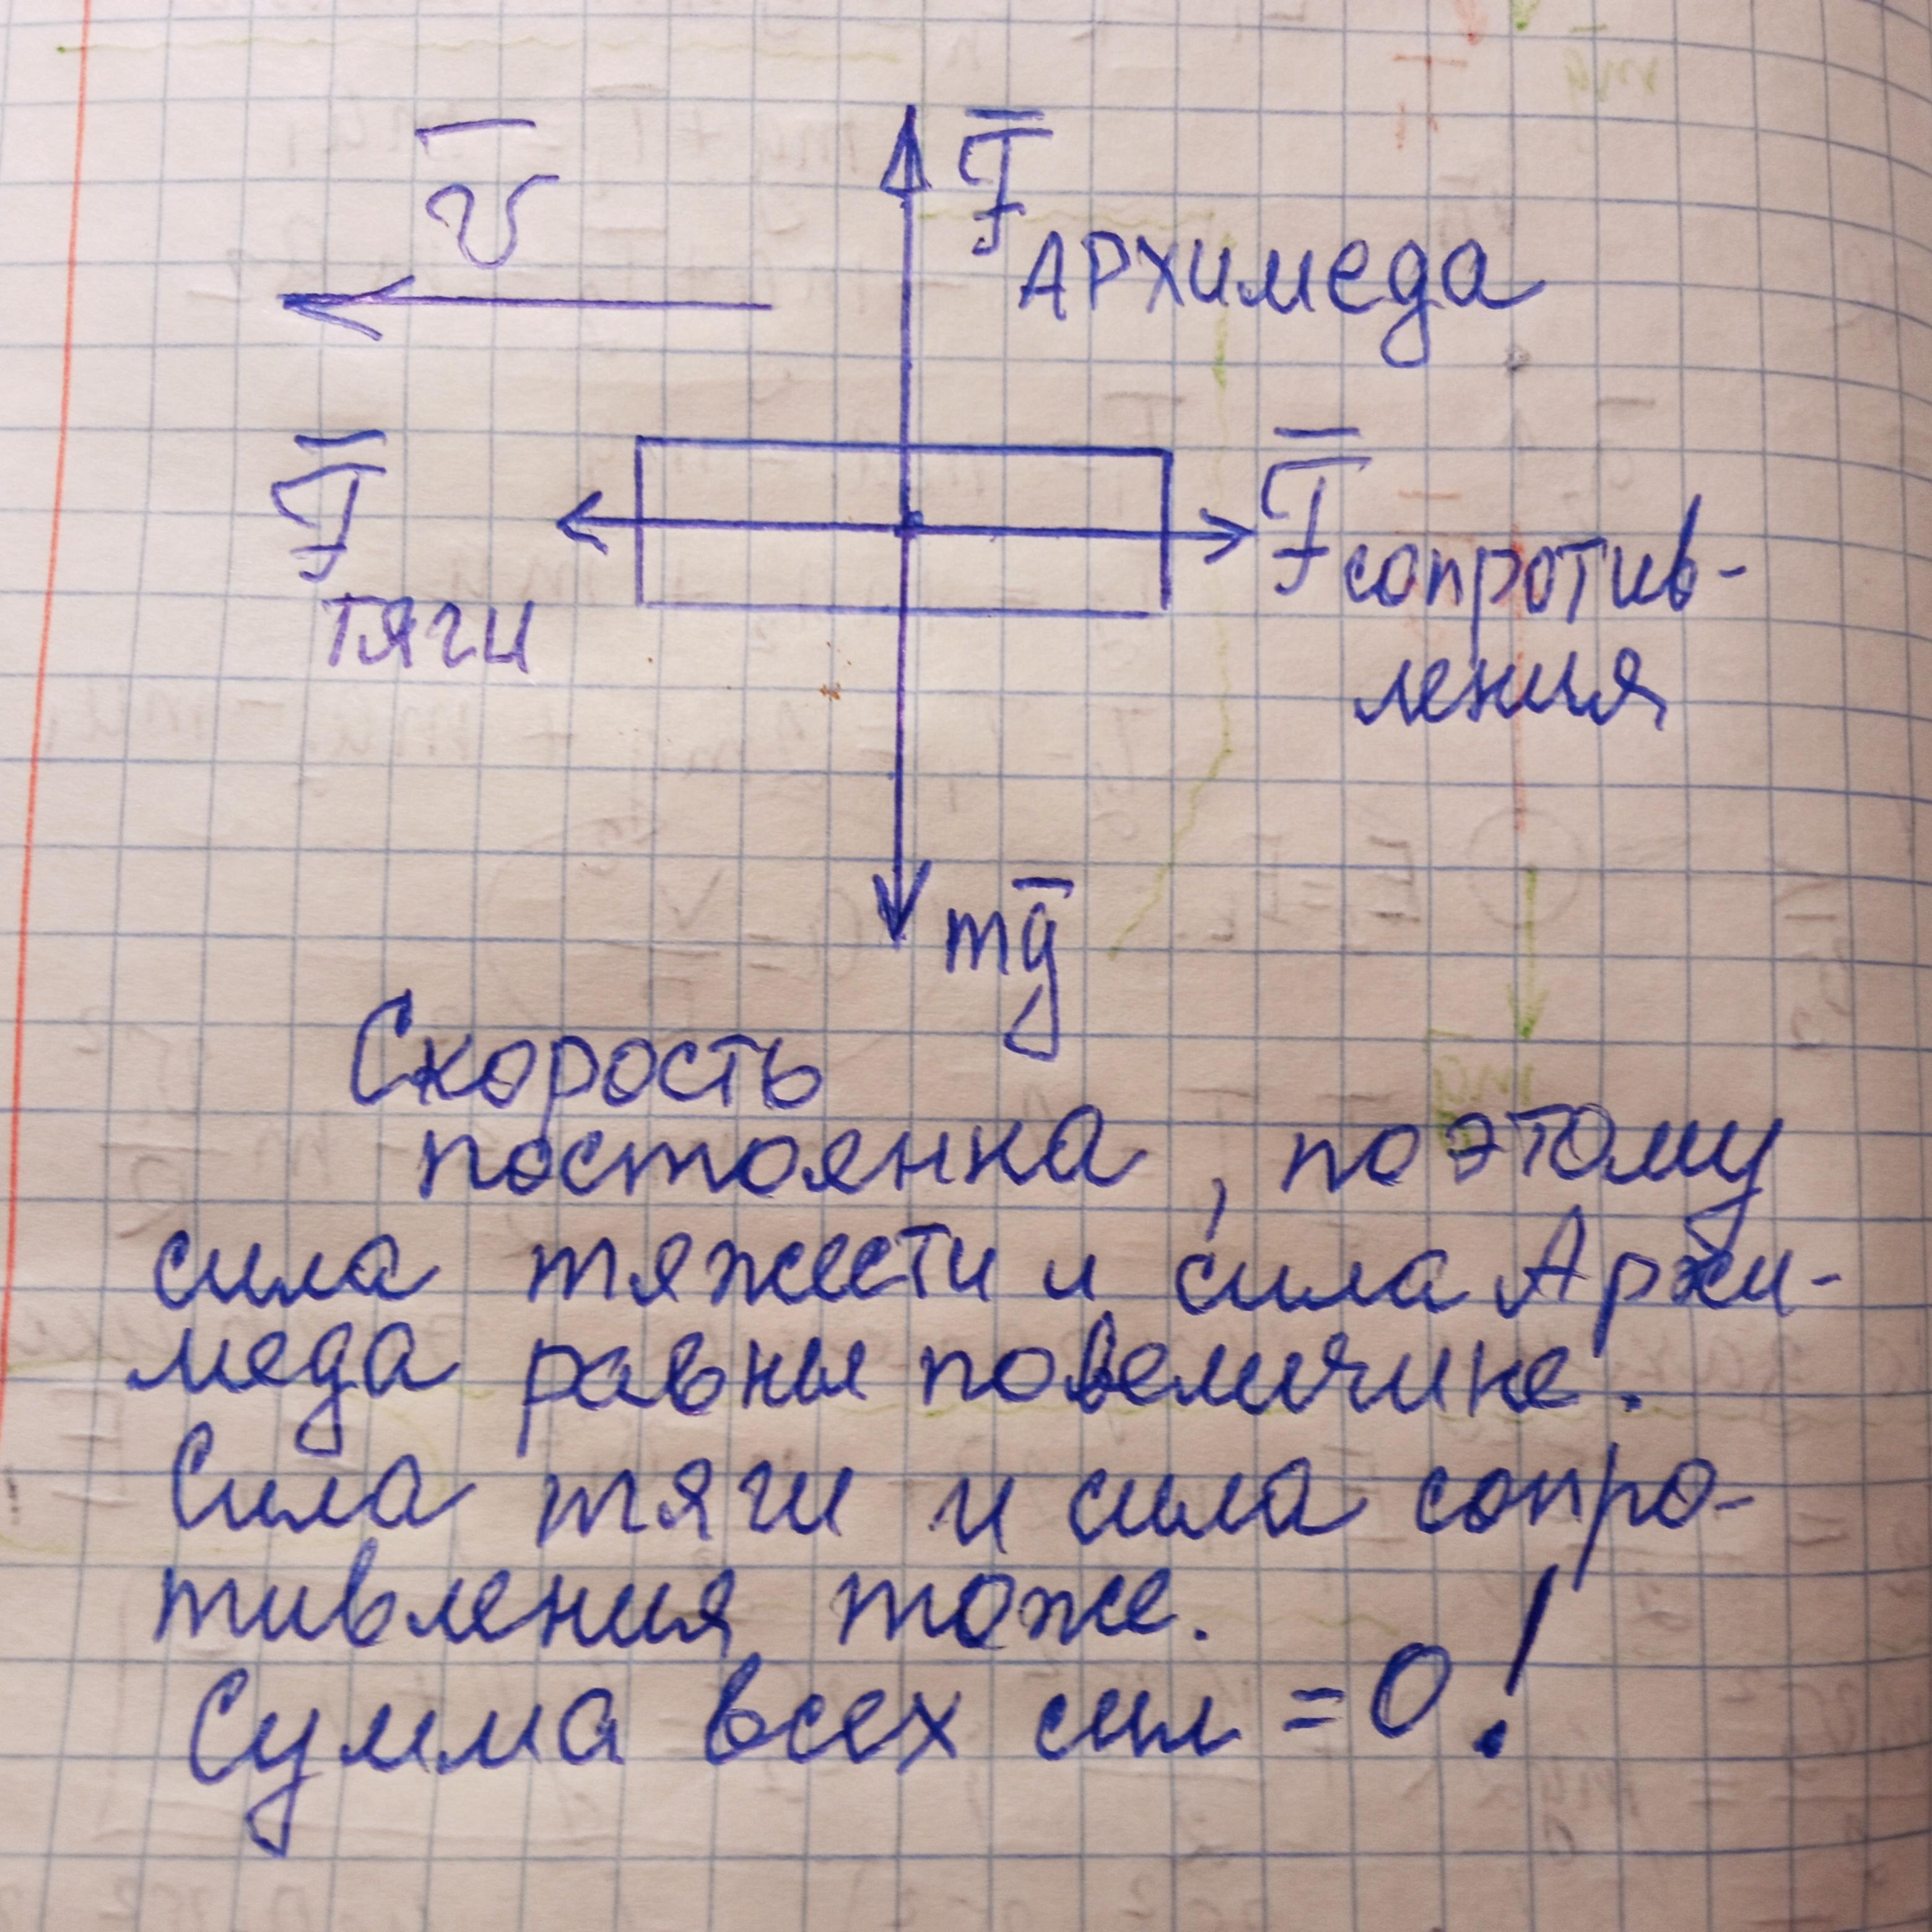 v̄
F̄ Архимеда
F̄ тяги
F̄ сопротив-
ления
mḡ
Скорость
постоянка, поэтому
сила тяжести и сила Архи-
меда равны по величине.
Сила тяги и сила сопро-
тивления тоже.
Сумма всех сил = 0!